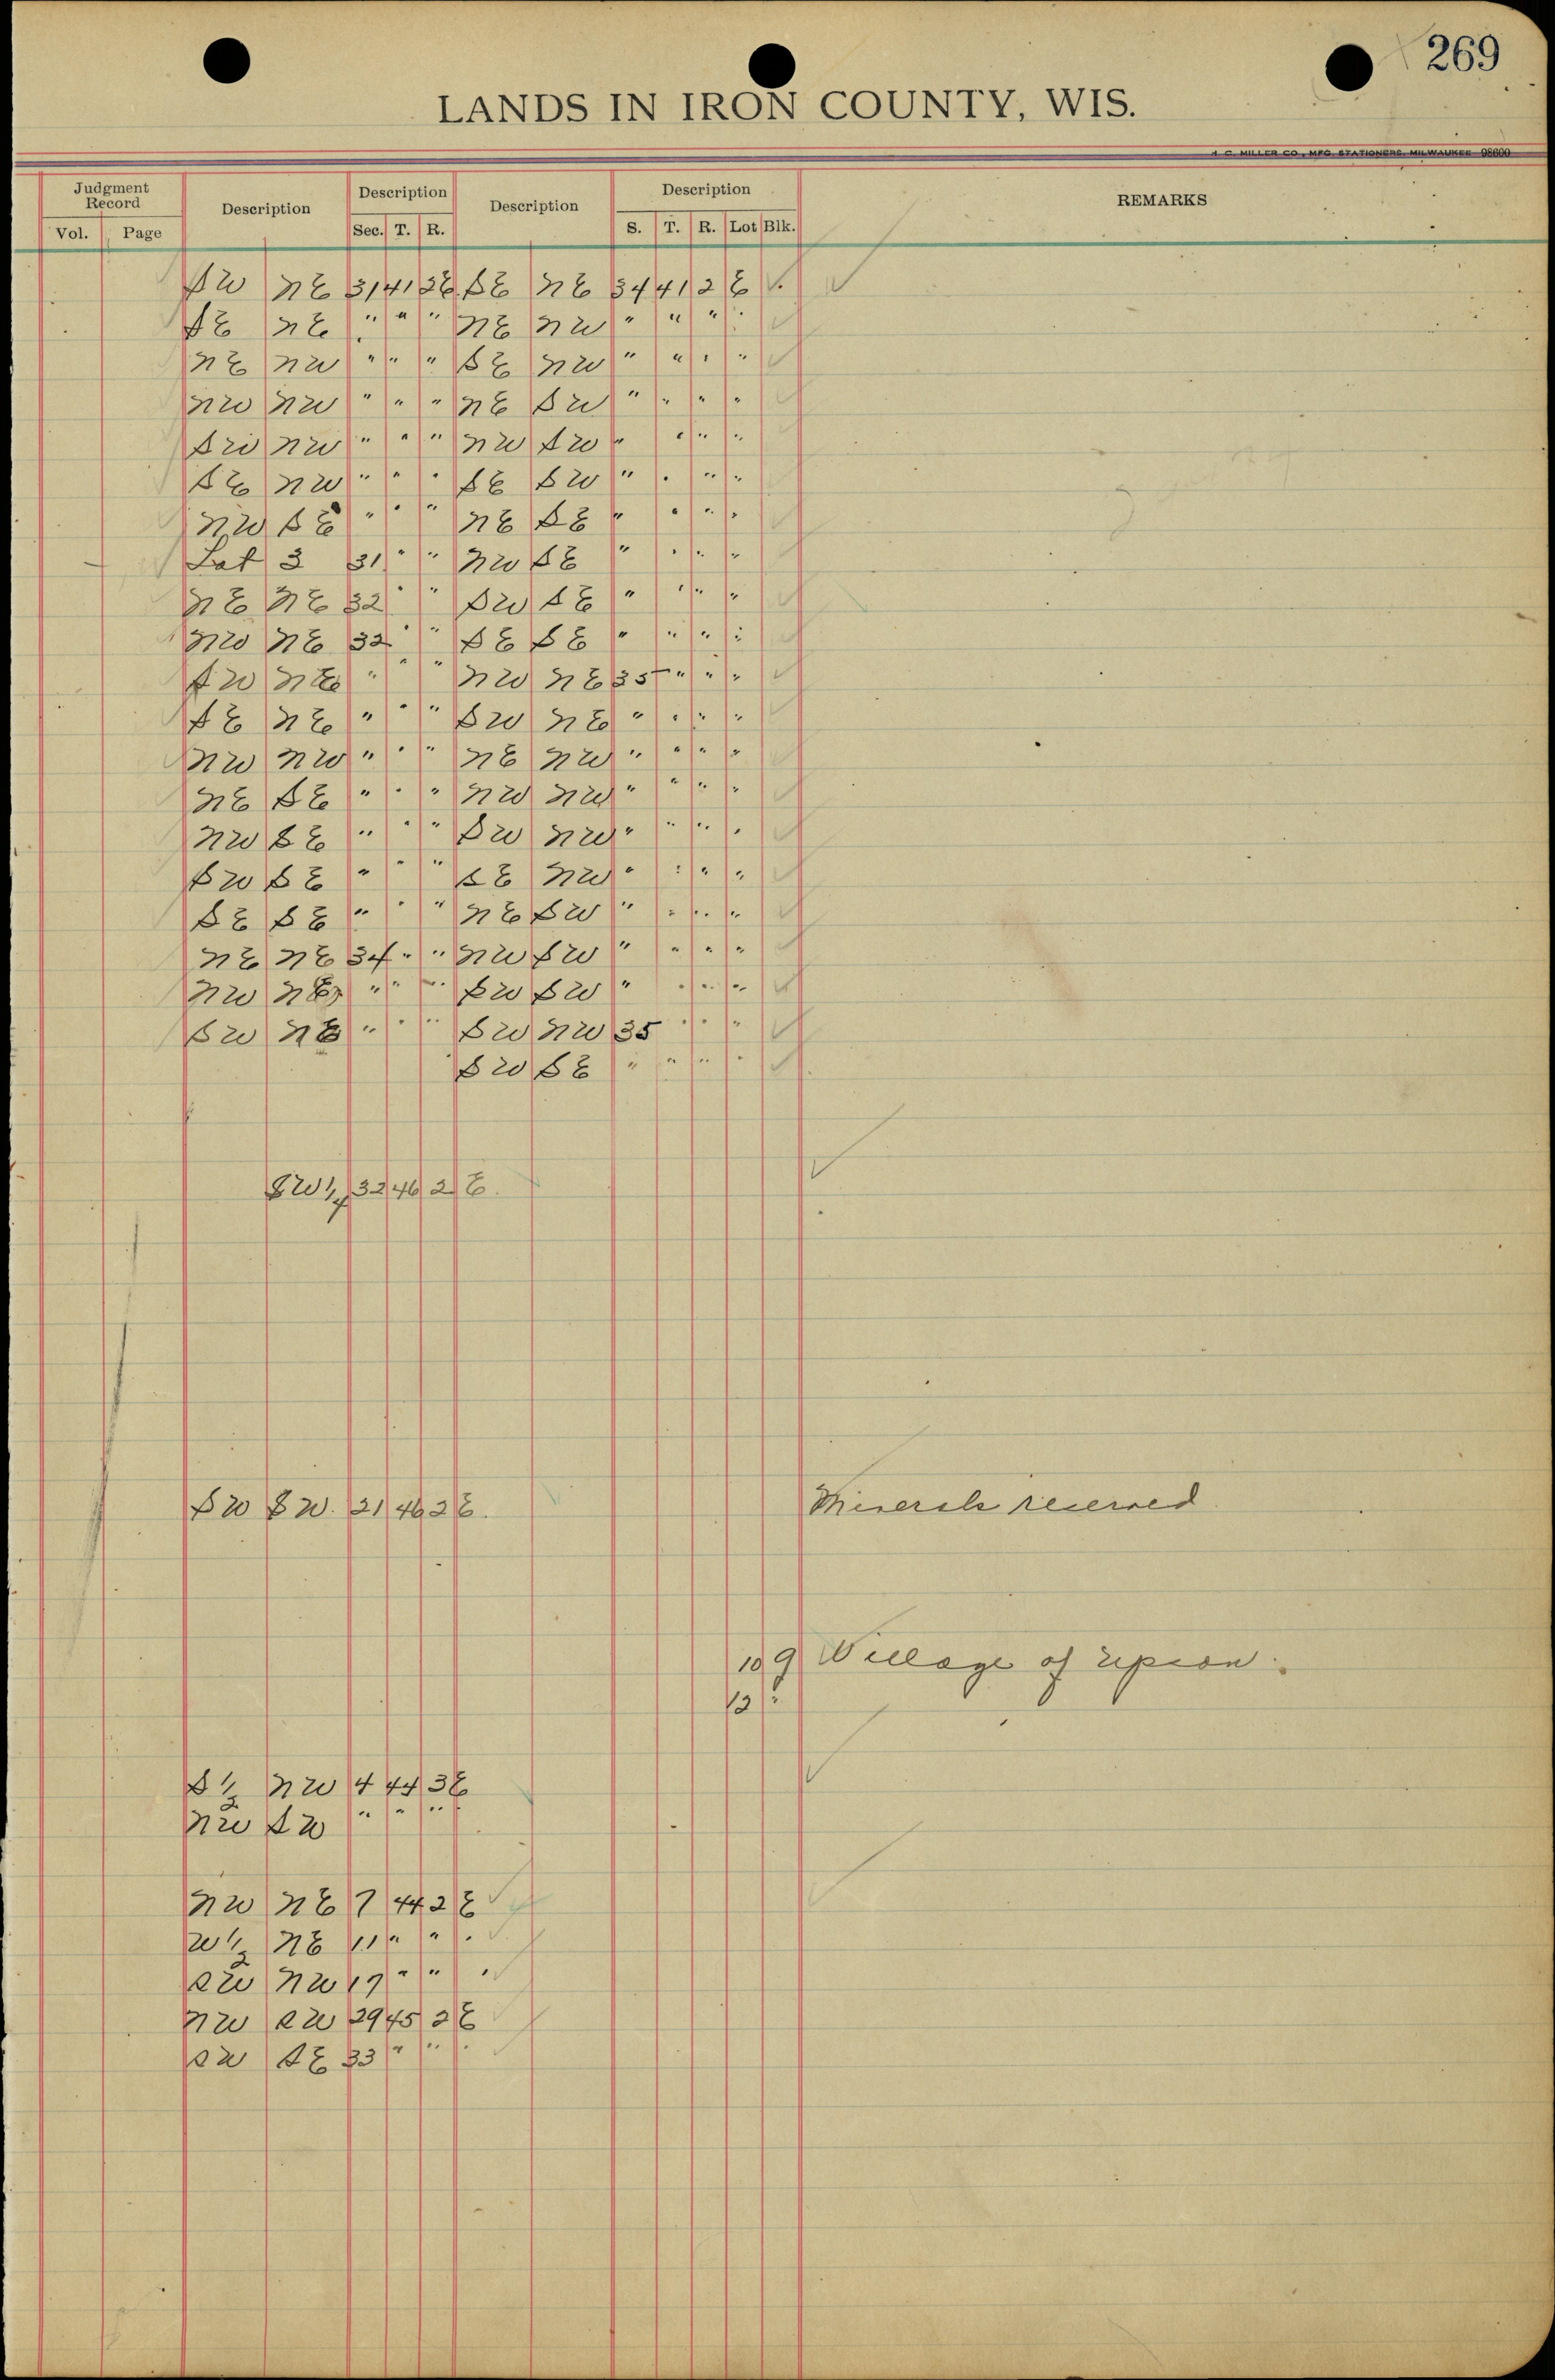 269
LANDS IN IRON COUNTY, WIS.
H. C. MILLER CO., MFG. STATIONERS, MILWAUKEE 98600
Judgment Record Description Description Description Description REMARKS
Vol. Page Sec. T. R. S. T. R. Lot Blk.
SW NE 31 41 2E SE NE 34 41 2 E
SE NE " " " NE NW " " "
NE NW " " " SE NW " " " "
NW NW " " " NE SW " " " "
SW NW " " " NW SW " " " "
SE NW " " " SE SW " " " "
NW SE " " " NE SE " " " "
Lot 3 31 " " NW SE " " " "
NE NE 32 " " SW SE " " " "
NW NE 32 " " SE SE " " " "
SW NE " " " NW NE 35 " " "
SE NE " " " SW NE " " " "
NW NW " " " NE NW " " " "
NE SE " " " NW NW " " " "
NW SE " " " SW NW " " " "
SW SE " " " SE NW " " " "
SE SE " " " NE SW " " " "
NE NE 34 " " NW SW " " " "
NW NE " " " SW SW " " " "
SW NE " " " SW NW 35 " " "
SW SE " " " "
SW 1/4 32 46 2 E.
SW SW. 21 46 2 E. Minerals reserved
10 9 Village of Upson.
12 "
S 1/2 NW 4 44 3E
NW SW " " "
NW NE 7 44 2 E
W 1/2 NE 11 " " "
SW NW 17 " " "
NW SW 29 45 2 E
SW SE 33 " " "